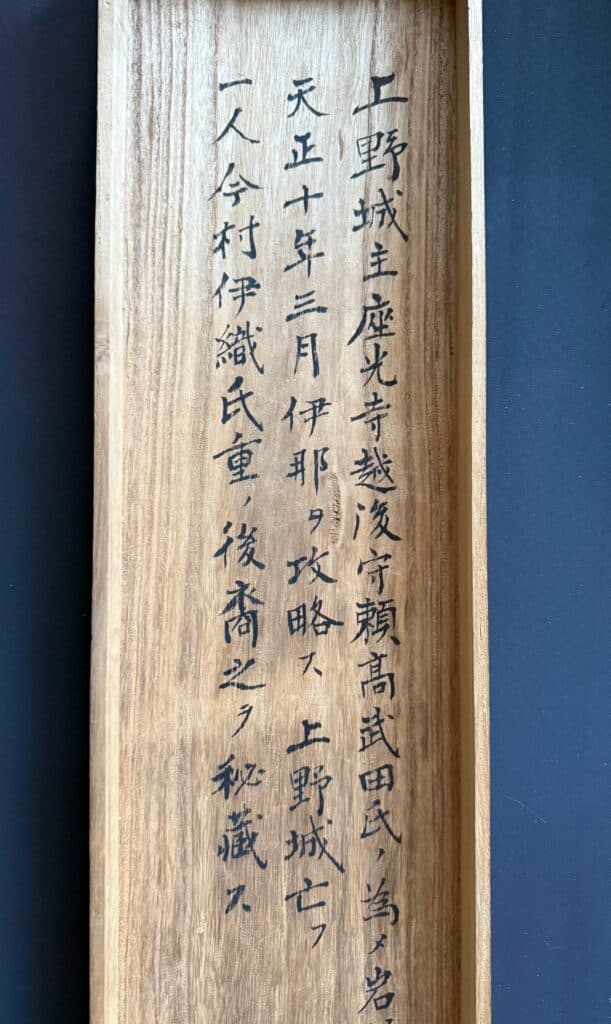 上野城主座光寺越後守頼高武田氏ノ為メ岩
天正十年三月伊那ヲ攻略ス 上野城亡フ
一人今村伊織氏重ノ後裔之ヲ秘藏ス